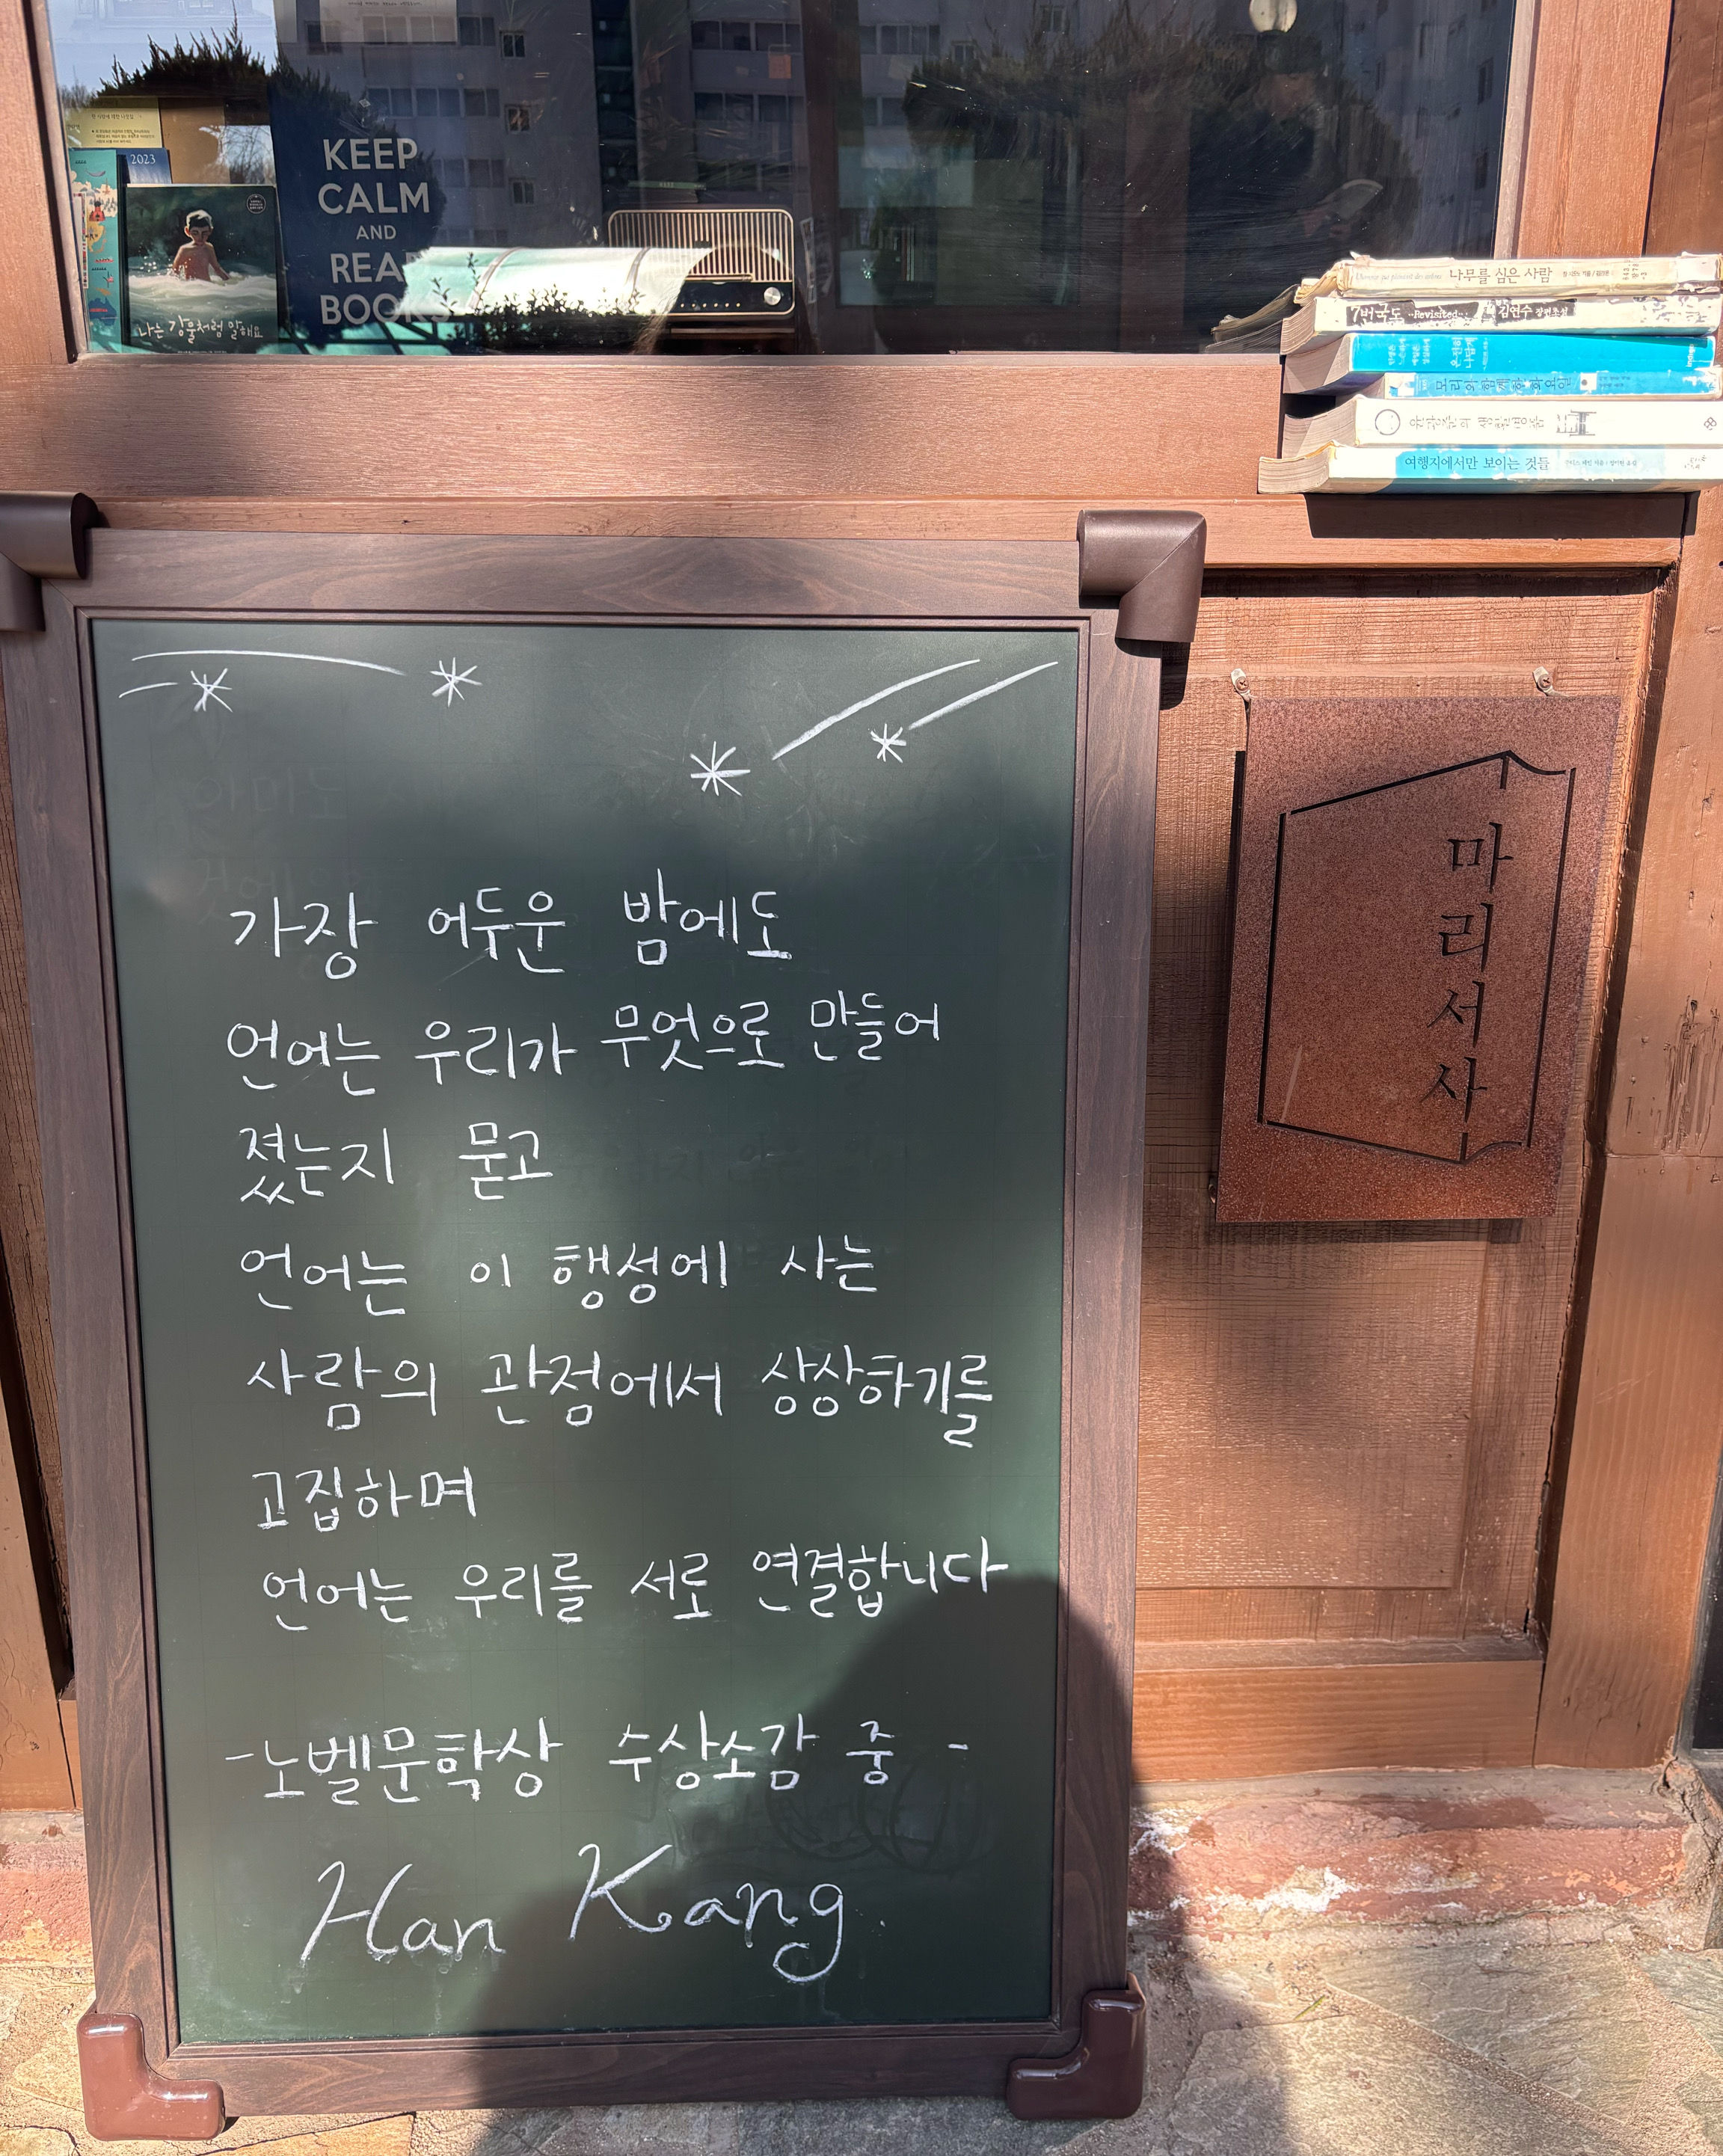 2023
KEEP
CALM
AND
READ
BOOKS
나는 강물처럼 말해요
나무를 심은 사람
7번국도 Revisited 김연수 장편소설
모리와 함께한 화요일
여행지에서만 보이는 것들
가장 어두운 밤에도
언어는 우리가 무엇으로 만들어
졌는지 묻고
언어는 이 행성에 사는
사람의 관점에서 상상하기를
고집하며
언어는 우리를 서로 연결합니다
-노벨문학상 수상소감 중 -
Han Kang.
마리서사